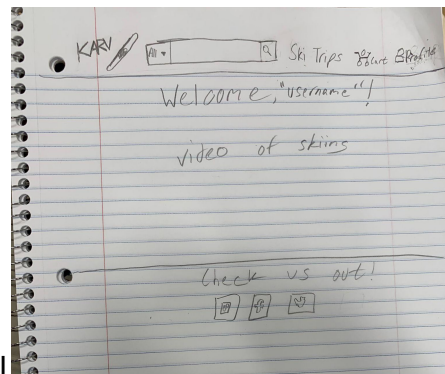 KARV All Ski Trips Cart Profile
Welcome, "username"!
video of skiing
Check us out!